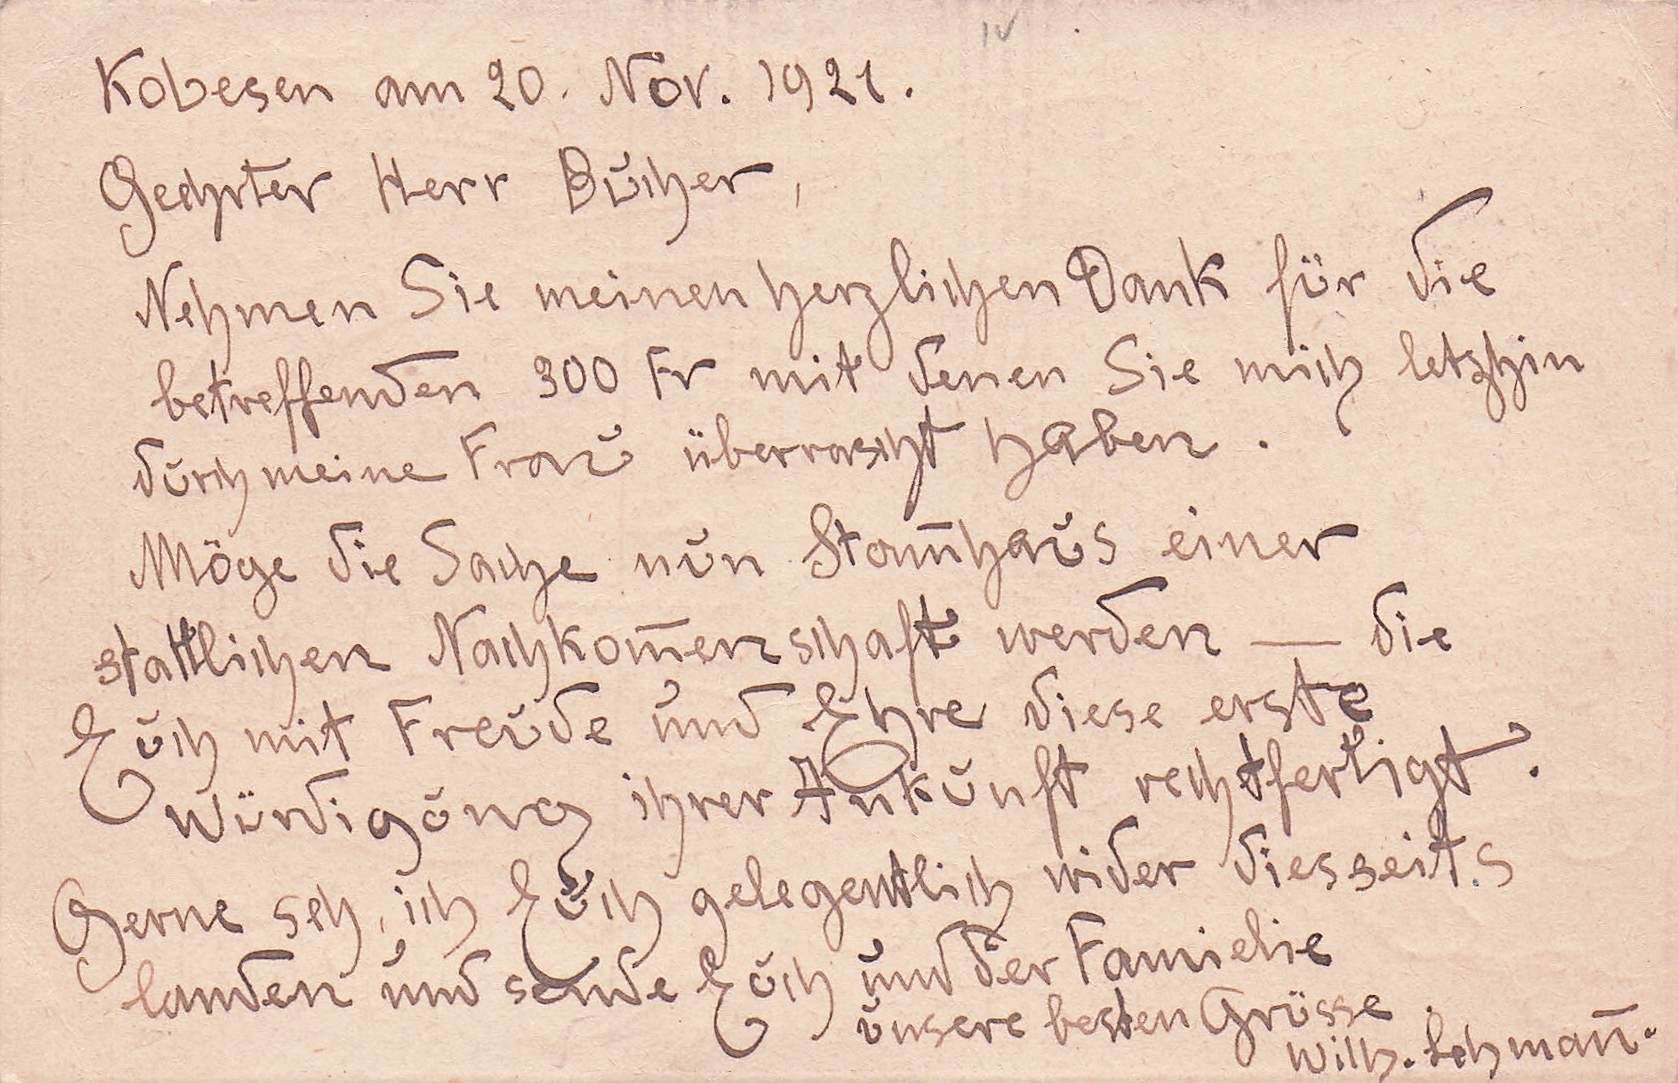 Kobesen am 20. Nov. 1921.
Geehrter Herr Bücher,
Nehmen Sie meinen herzlichen Dank für die
betreffenden 300 Fr mit denen Sie mich letzthin
durch meine Frau überrascht haben.
Möge die Sache nun Stam̅haus einer
stattlichen Nachkom̅enschaft werden — die
Euch mit Freude und Ehre diese erste
Würdigung ihrer Ankunft rechtfertigt.
Gerne seh, ich Euch gelegentlich wider diesseits
landen und sende Euch und der Famielie
unsere besten Grüsse
Wilh. Lehman̅.